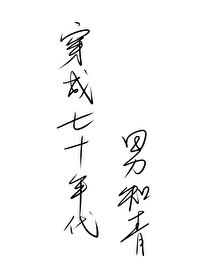 穿成七十年代
男知青